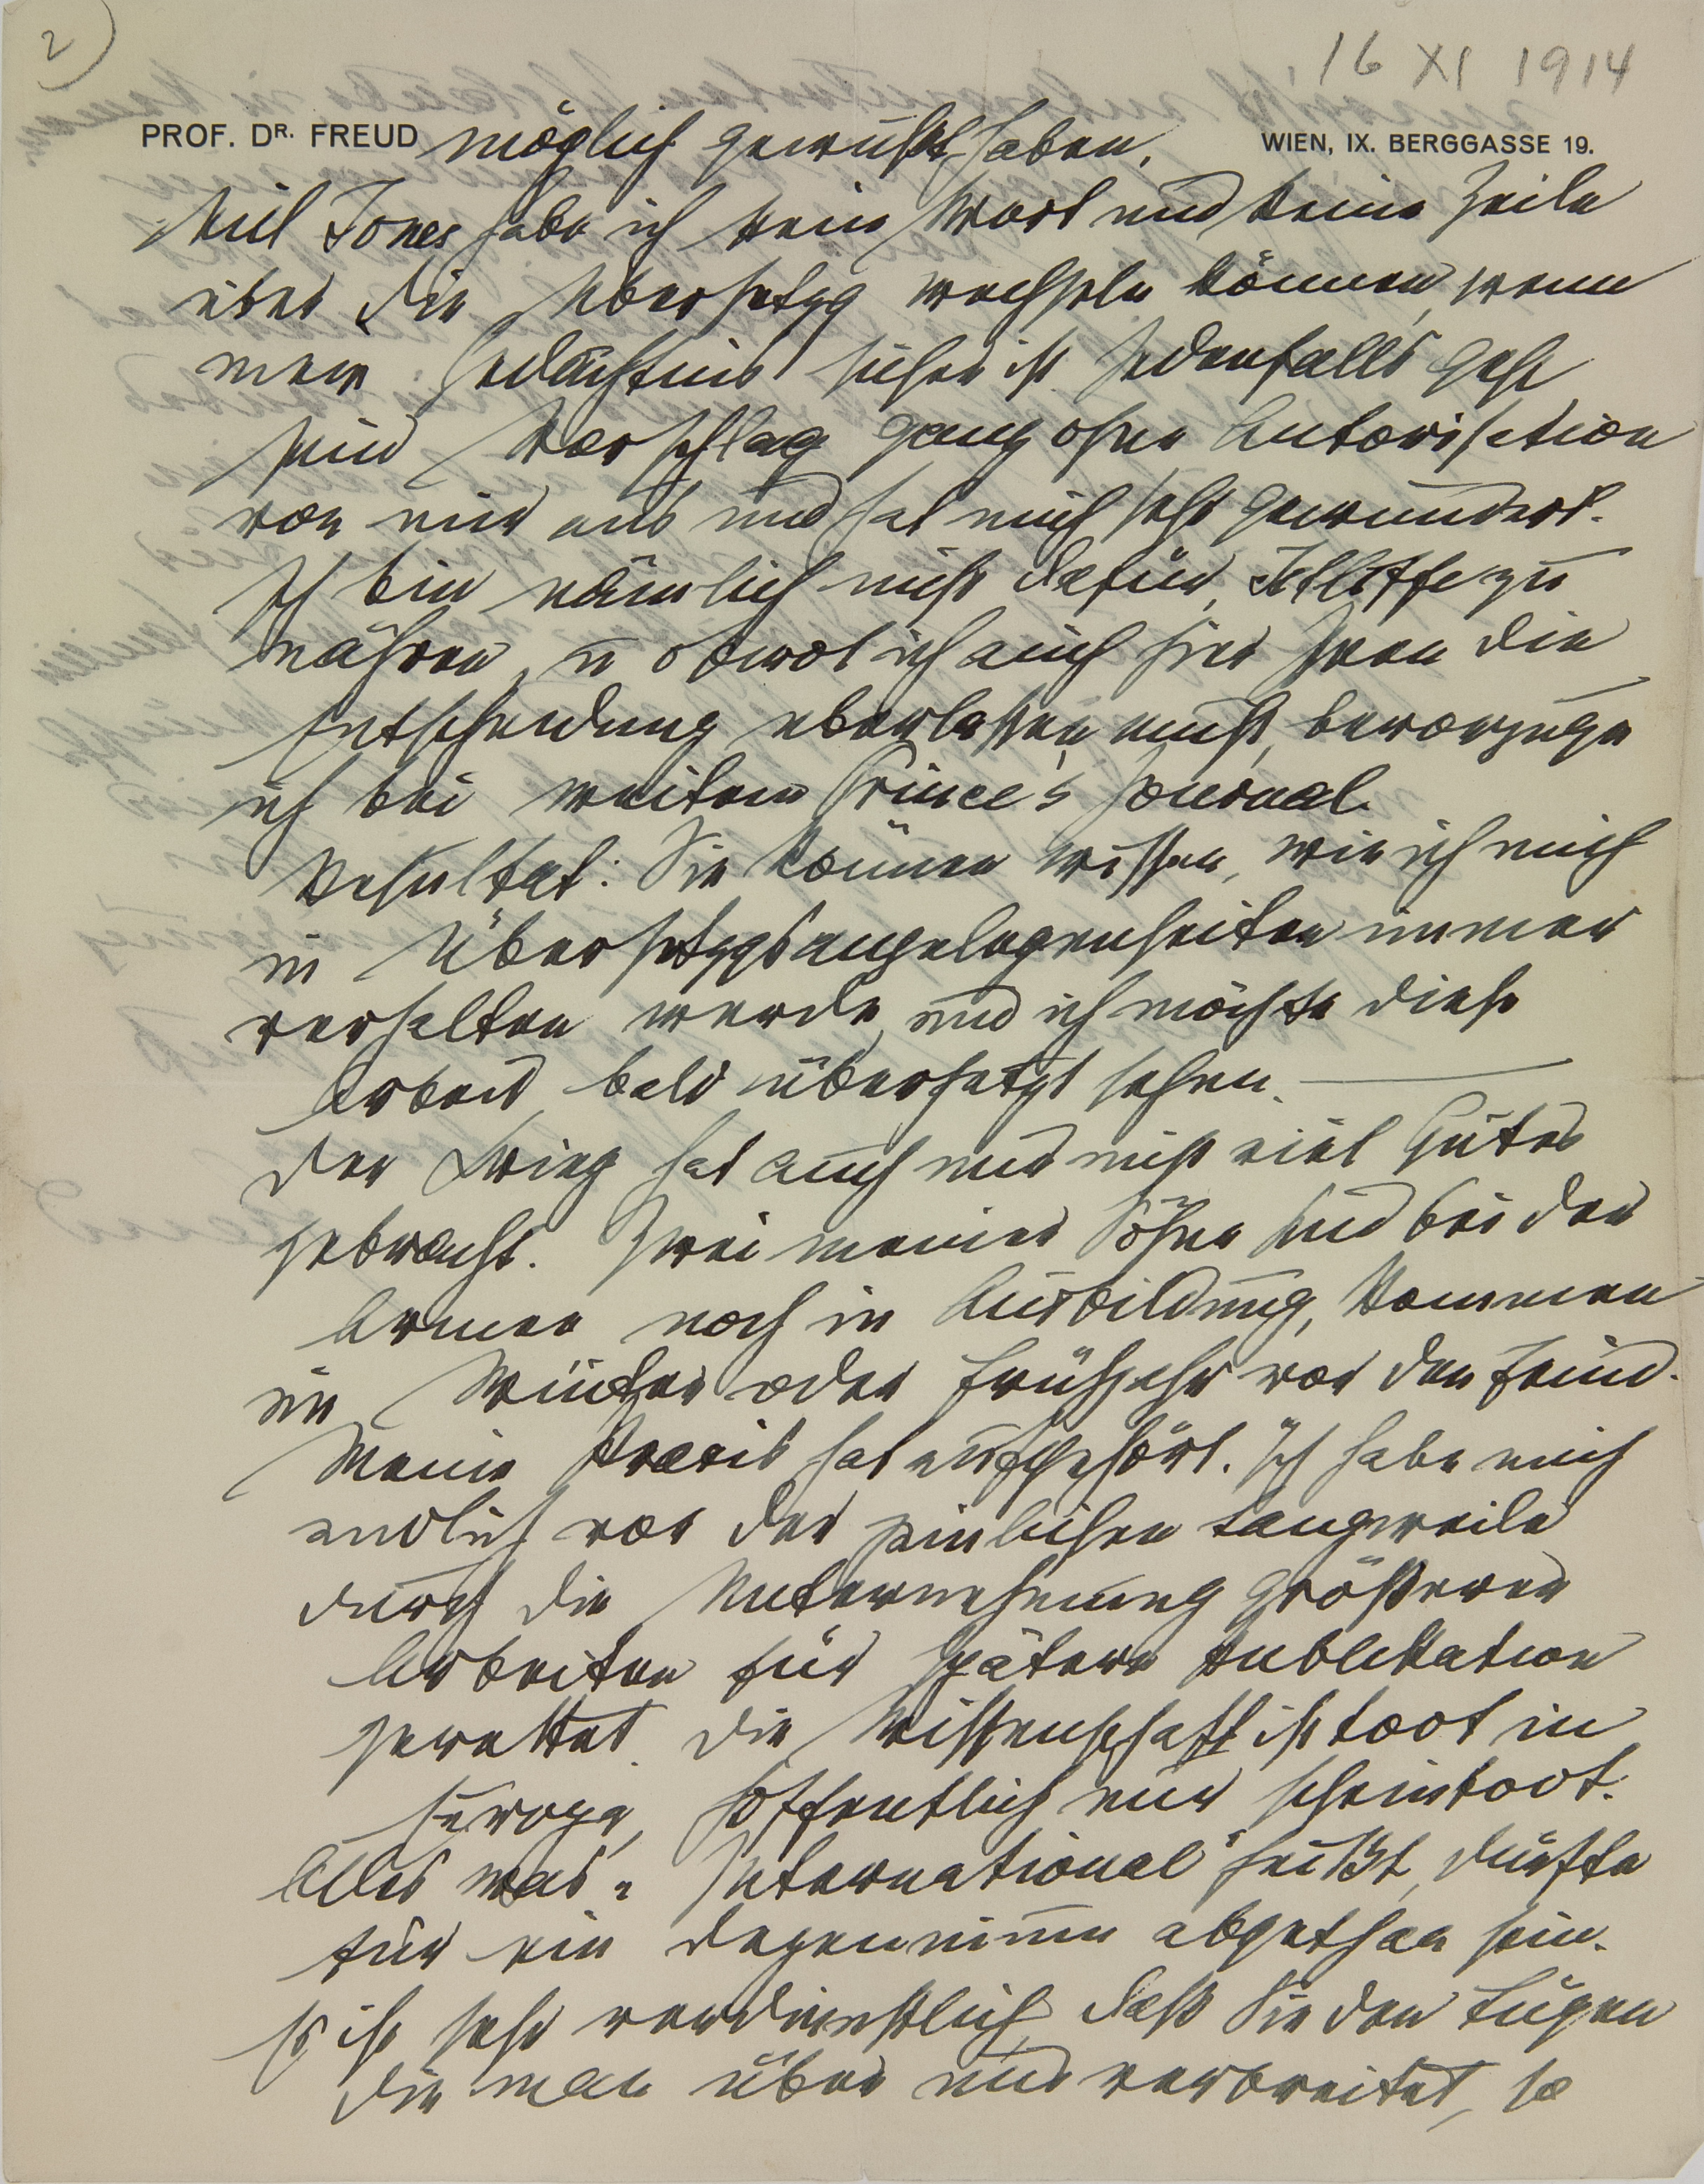 2)
16 XI 1914
PROF. DR. FREUD
WIEN, IX. BERGGASSE 19.
möglich gewußt haben.
Mit Jones habe ich kein Wort und keine Zeile
über die Übersetzg wechseln können, wenn
mein Gedächtnis sicher ist. Jedenfalls geht
sein Vorschlag ganz ohne Autorisation
von mir aus und hat mich sehr gewundert.
Ich bin nämlich nicht dafür, Jelliffe zu
nähren, u obwol ich auch hier Ihnen die
Entscheidung überlassen muß, bevorzuge
ich bei weitem Prince's Journal.
Resultat: Sie können wissen, wie ich mich
in Übersetzgsangelegenheiten immer
verhalten werde, und ich möchte diese
Arbeit bald übersetzt sehen. —
Der Krieg hat auch mir nicht viel Gutes
gebracht. Zwei meiner Söhne sind bei der
Armee noch in Ausbildung, kommen
im Winter oder Frühjahr vor den Feind.
Meine Praxis hat aufgehört. Ich habe mich
endlich vor der peinlichen Langweile
durch die Unternehmung größerer
Arbeiten für spätere Publikation
gerettet. Die Wissenschaft ist toot in
Europa, hoffentlich nur scheintoot.
Alles was „International" heißt, dürfte
für ein Dezennium abgethan sein.
Es ist sehr verdienstlich, daß Sie den Lügen
die man über uns verbreitet, so